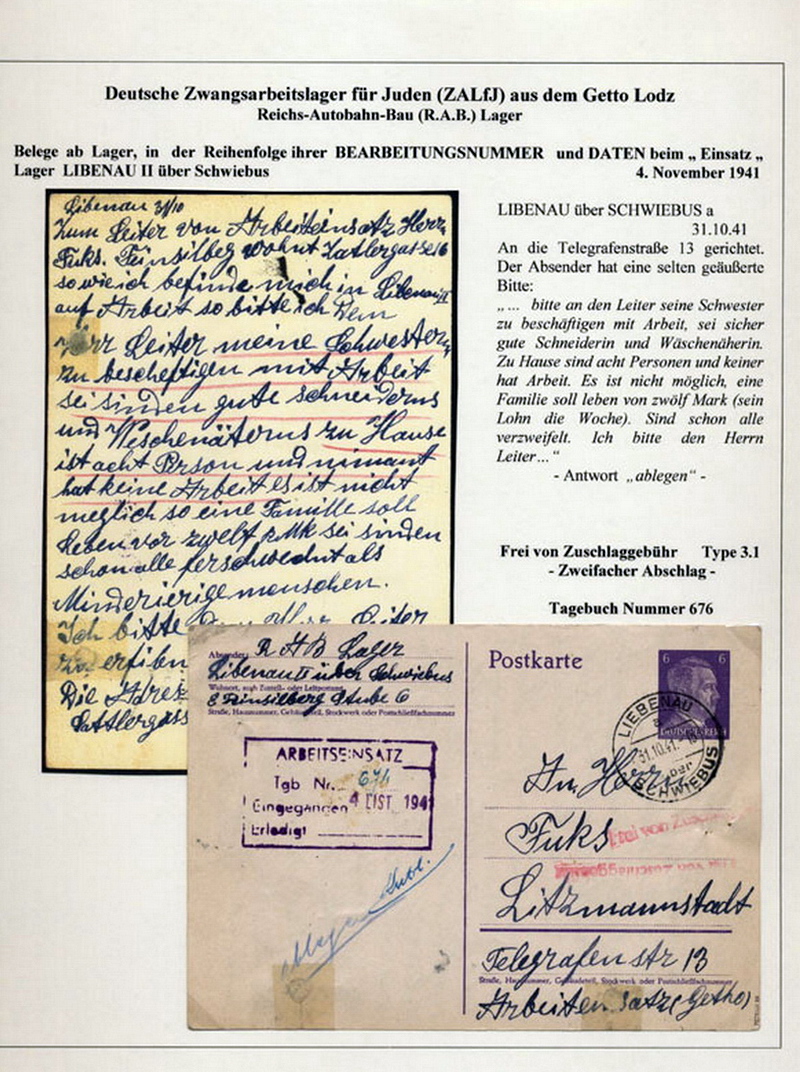 Deutsche Zwangsarbeitslager für Juden (ZALfJ) aus dem Getto Lodz
Reichs-Autobahn-Bau (R.A.B.) Lager
Belege ab Lager, in der Reihenfolge ihrer BEARBEITUNGSNUMMER und DATEN beim „ Einsatz „
Lager LIBENAU II über Schwiebus 4. November 1941
Libenau 31/10
Zum Leiter von Arbeiteinsatz Herr
Fuks. Feinsilbeg wohnt Zatlergasse 16
so wie ich befinde mich in Libenau II
auf Arbeit so bitte ich Dem
Herr Leiter meine Schwester
zu bescheftigen mit Arbeit
sei sinden gute schneiderns
und Weschenäterns zu Hause
ist acht Person und nimant
hat keine Arbeit es ist nicht
meglich so eine Familie soll
Leben vor zwelf RMk sei sinden
schon alle ferschwednt als
Minderierige menschen.
Ich bitte Herr Leiter
zu erfiben
Die Adres
Sattlergass
LIBENAU über SCHWIEBUS a
31.10.41
An die Telegrafenstraße 13 gerichtet.
Der Absender hat eine selten geäußerte
Bitte:
„... bitte an den Leiter seine Schwester
zu beschäftigen mit Arbeit, sei sicher
gute Schneiderin und Wäschenäherin.
Zu Hause sind acht Personen und keiner
hat Arbeit. Es ist nicht möglich, eine
Familie soll leben von zwölf Mark (sein
Lohn die Woche). Sind schon alle
verzweifelt. Ich bitte den Herrn
Leiter...“
- Antwort „ablegen“ -
Frei von Zuschlaggebühr Type 3.1
- Zweifacher Abschlag -
Tagebuch Nummer 676
Absender: RAB Lager
Libenau II über Schwiebus
Wohnort, auch Zustell- oder Leitpostamt
Feinsilberg Stube 6
Straße, Hausnummer, Gebäudeteil, Stockwerk oder Postschließfachnummer
Postkarte
6 6
DEUTSCHES REICH
LIEBENAU
31.10.41
über
SCHWIEBUS
ARBEITSEINSATZ
Tgb Nr. 676
Eingegangen 4 1941
Erledigt
An Herrn
Fuks
Frei von
Litzmannstadt
Telegrafen str 13
Straße, Hausnummer, Gebäudeteil, Stockwerk oder Postschließfachnummer
Arbeiten satz (Getho)